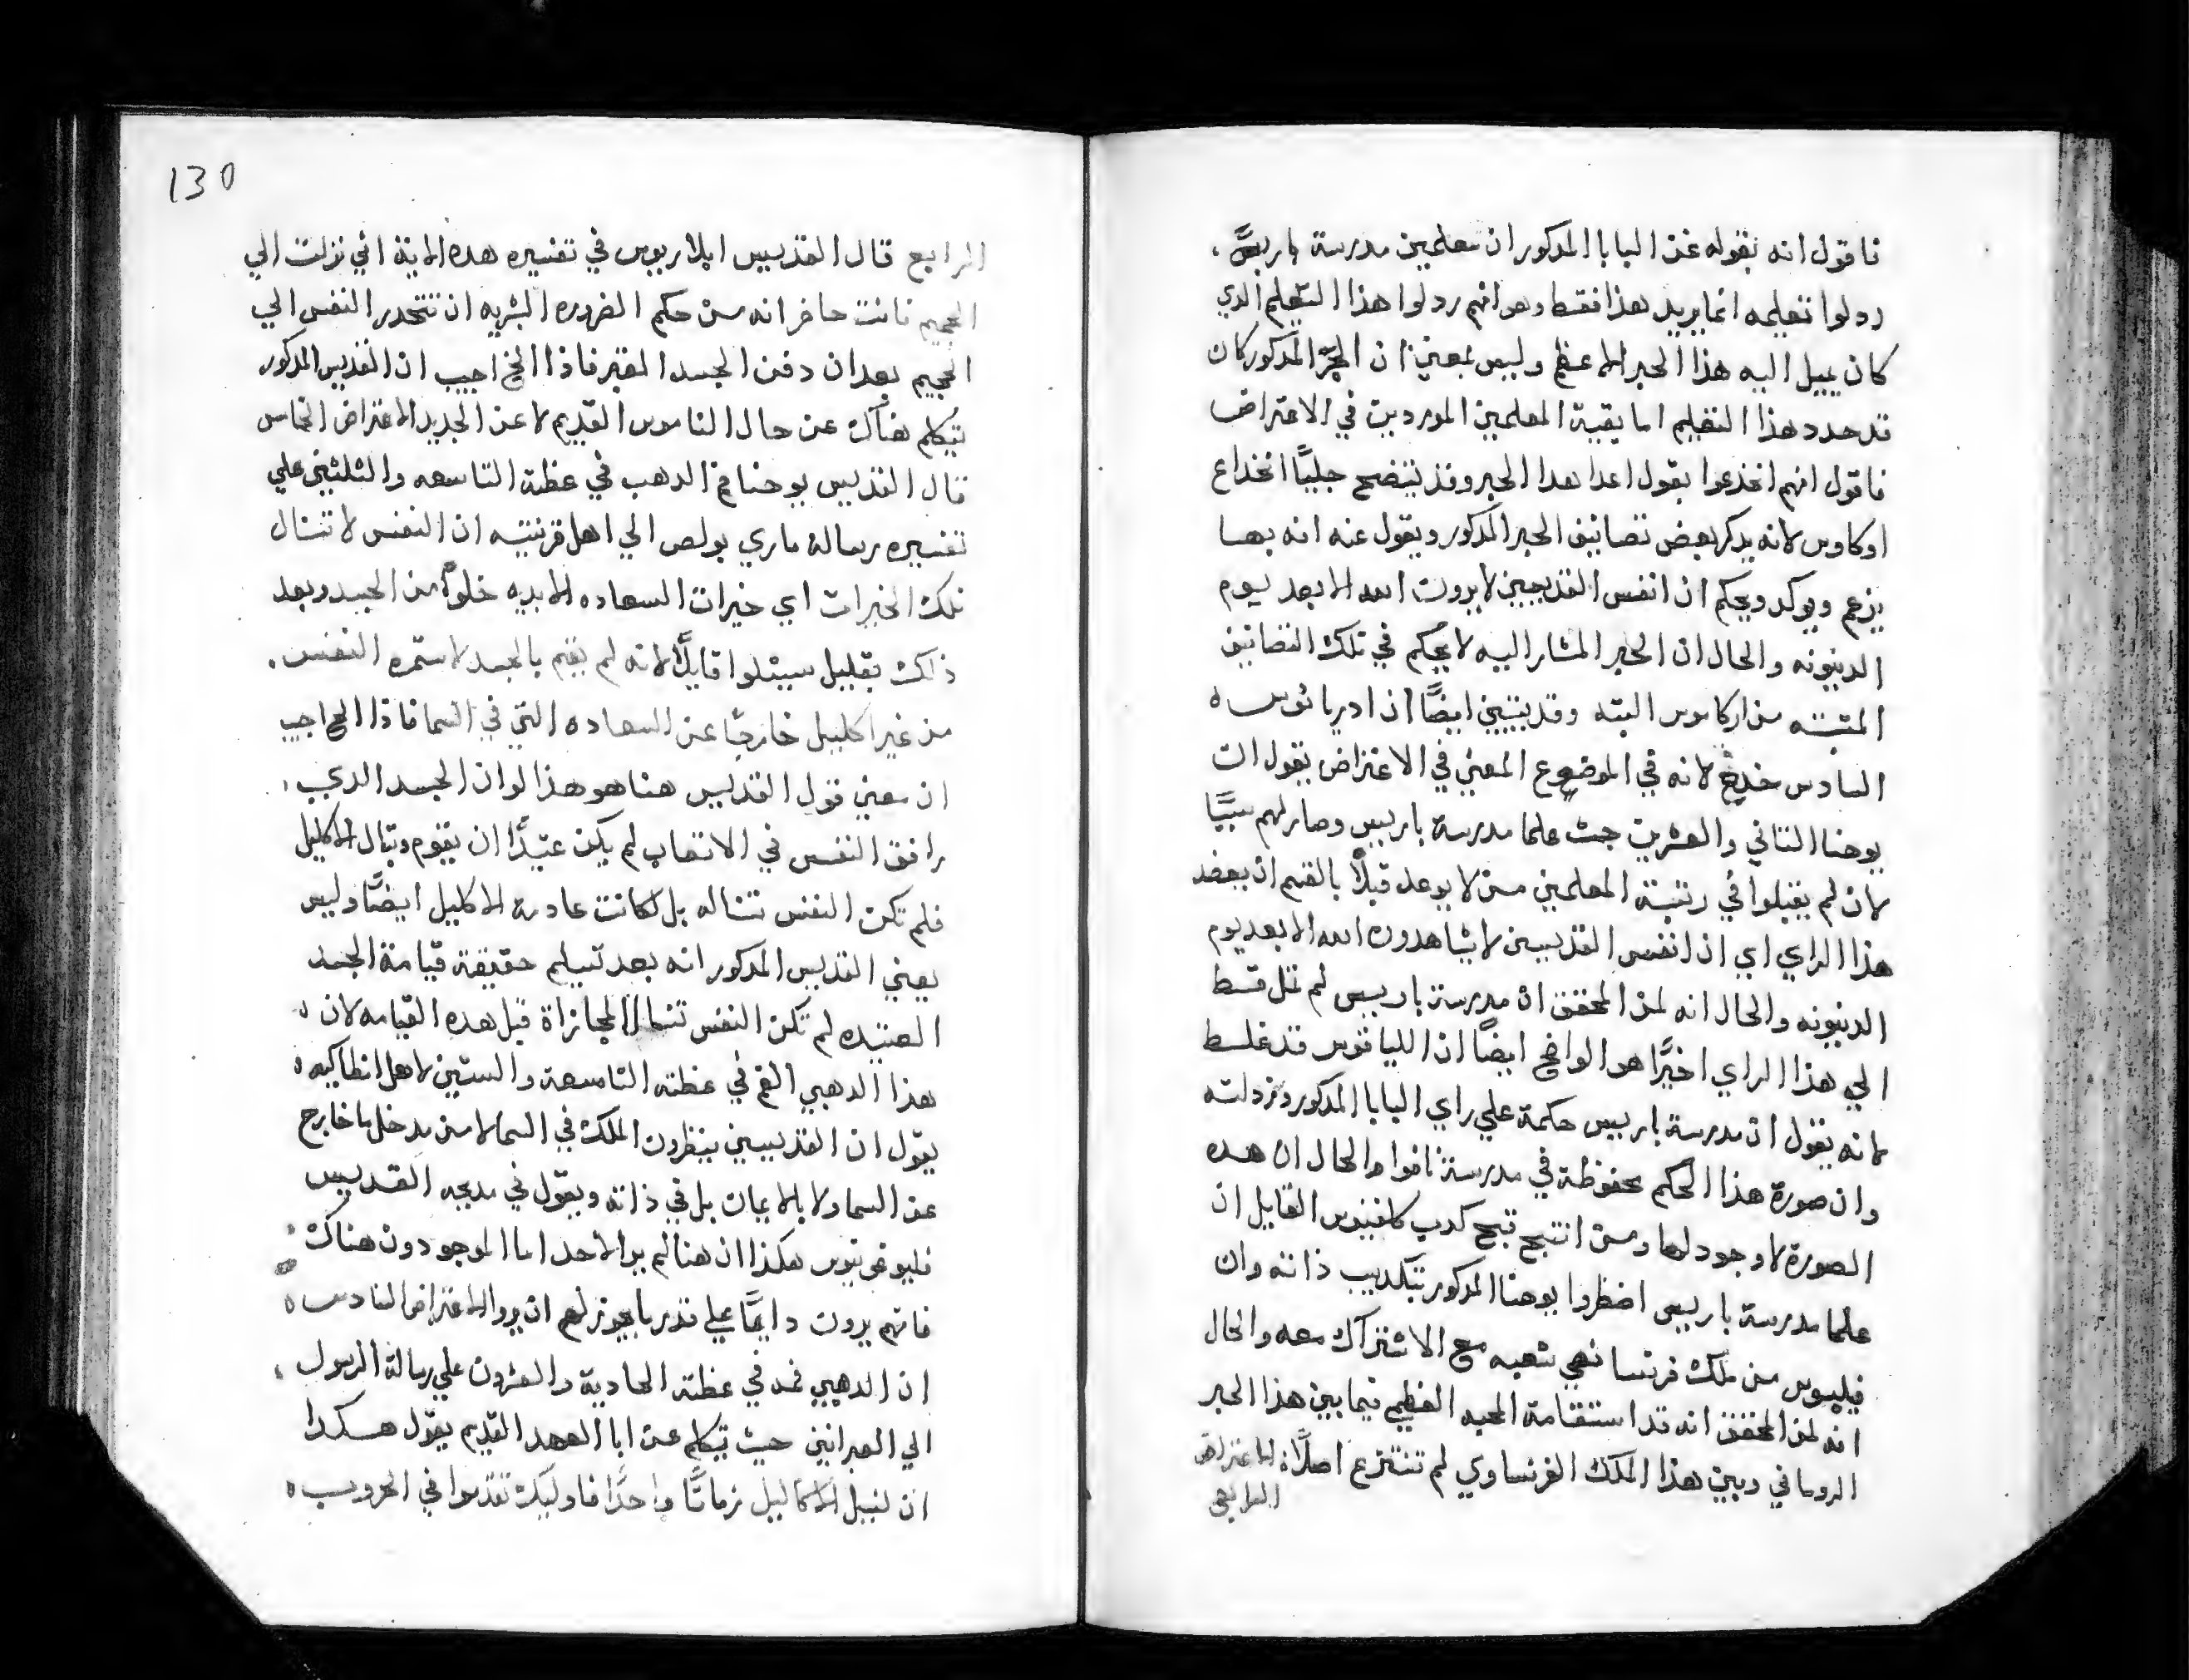 فاقول انه بقوله عن البابا المدكور ان معلمين مدرسة باريس
ردلوا تعليمه انما يريد هذا فقط وهو انهم ردلوا هذا التعليم الدي
كان يميل اليه هذا الحبر الاعظم وليس بمعني ان الحبر المدكور كان
قد حدد هذا التعليم اما بقية المعلمين الموردين في الاعتراض
فاقول انهم انخدعوا بقول اعدا هدا الحبر وقد يتضح جليًا انخداع
اوكاوس لانه يدكر بعض تصانيف الحبر المدكور ويقول عنه انه بها
يزعم ويوكد ويحكم ان انفس القديسين لا يرون الله الا بعد يوم
الدينونه والحال ان الحبر المشار اليه لا يحكم في تلك التصانيف
المتبته من اوكاموس البته وقد يتبين ايضًا ان ادريانوس
السادس خدع لانه في الموضوع المعني في الاعتراض يقول ان
يوحنا التاني والعشرين حث علما مدرسة باريس وصار لهم سببًا
لان لم يقبلوا في رتبة المعلمين من لا يوعد قبلًا بالقسم ان يعضد
هذا الراي اي ان انفس القديسين لا يشاهدون الله الا بعد يوم
الدينونه والحال انه لمن المحقق ان مدرسة باريس لم تمل قط
الي هذا الراي اخيرًا هو الواضح ايضًا ان اللياقوس قد غلط
لانه يقول ان مدرسة باريس حكمة علي راي البابا المدكور وردلته
وان صورة هذا الحكم محفوظة في مدرسة نافوا والحال ان هده
الصورة لا وجود لها ومن انتبج قبح كدب كلفينوس القايل ان
علما مدرسة باريس اضطروا يوحنا المدكور بتكديب ذاته وان
فيلبوس من ملك فرنسا نهي شعبه مع الاشتراك معه والحال
انه لمن المحقق انه قد استقامة المحبه العظيم فيما بين هذا الحبر
الروماني وبين هذا الملك الفرنساوي لم تنتزع اصلًا الاعتراض
الرابع
130
الرابع قال القديس ايلاريوس في تفسيره هده الاية اني نزلت الي
الجحيم فانت حاضر انه من حكم الضروره البشريه ان تنحدر النفس الي
الجحيم بعد ان دفن الجسد القبر فاذا الخ اجيب ان القديس المدكور
يتكلم هناك عن حال الناموس القديم لا عن الجديد الاعتراض الخامس
قال القديس يوحنا فم الدهب في عظته التاسعه والثلثين علي
تفسيره رسالة ماري بولص الي اهل قرنتيه ان النفس لا تنال
تلك الخيرات اي خيرات السعاده الابديه خلوًا من الجسد وبعد
ذلك بقليل سيتلوا قايلًا لانه لم يقم بالجسد لاستمره النفس
من غير اكليل خارجًا عن السعاده التي في السما فاذا الخ اجيب
ان معني قول القديس هنا هو هذا لو ان الجسد الدي
رافق النفس في الاتعاب لم يكن عتيدًا ان يقوم وينال الاكليل
فلم تكن النفس تناله بل لكانت عادمة الاكليل ايضًا وليس
يعني القديس المدكور انه بعد تسليم حقيقة قيامة الجسد
العتيده لم تكن النفس تنال المجازاة قبل هده القيامه لان
هذا الدهبي الفم في عظته التاسعة والستين لاهل انطاكيه
يقول ان القديسين ينظرون الملك في السما لا من مدخل ما خارج
عن السما ولا بالايمان بل في ذاته ويقول في مديحه القديس
فليوغونيوس هكذا ان هنا لم ير الاحد اما الموجودون هناك
فانهم يرون دايمًا علي قدر ما يجوز لهم ان يروا الاعتراض السادس
ان الدهبي فمه في عظته الحادية والعشرون علي رسالة الرسول
الي العبرانيين حيث يتكلم عن ابا العهد القديم يقول هكدا
ان لنيل الاكاليل زمانًا واحدًا فاوليك تقدموا في الحروب